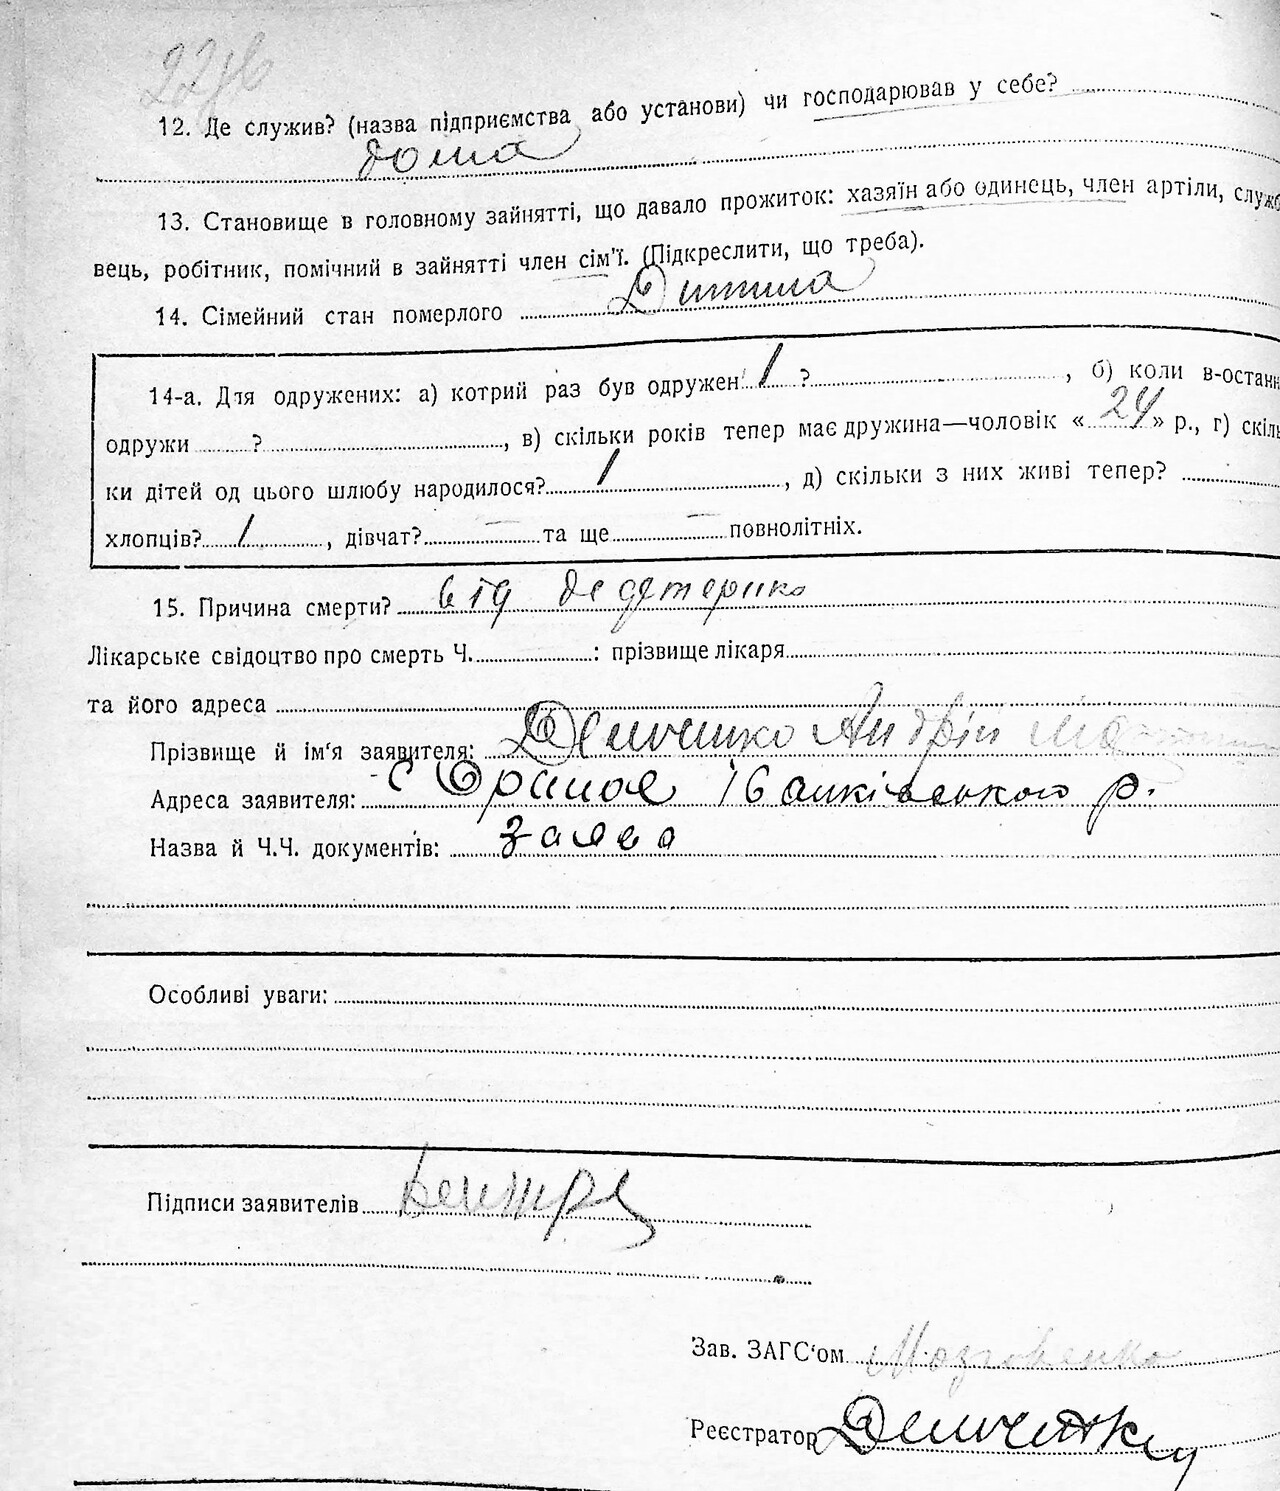 12. Де служив? (назва підприємства або установи) чи господарював у себе?
дома
13. Становище в головному зайнятті, що давало прожиток: хазяїн або одинець, член артіли, служб
вець, робітник, помічний в зайнятті член сім'ї. (Підкреслити, що треба).
14. Сімейний стан померлого Дитина
14-а. Для одружених: а) котрий раз був одружен 1 ?, б) коли в-останн
одружи ?, в) скільки років тепер має дружина—чоловік « 24 » р., г) скіль
ки дітей од цього шлюбу народилося? 1, д) скільки з них живі тепер?
хлопців? 1, дівчат? — та ще — повнолітніх.
15. Причина смерти? від
Лікарське свідоцтво про смерть Ч. : прізвище лікаря
та його адреса
Прізвище й ім'я заявителя: Демченко Андрій
Адреса заявителя: с Іванківського р.
Назва й Ч.Ч. документів: заява
Особливі уваги:
Підписи заявителів
Зав. ЗАГС'ом
Реєстратор Демченко